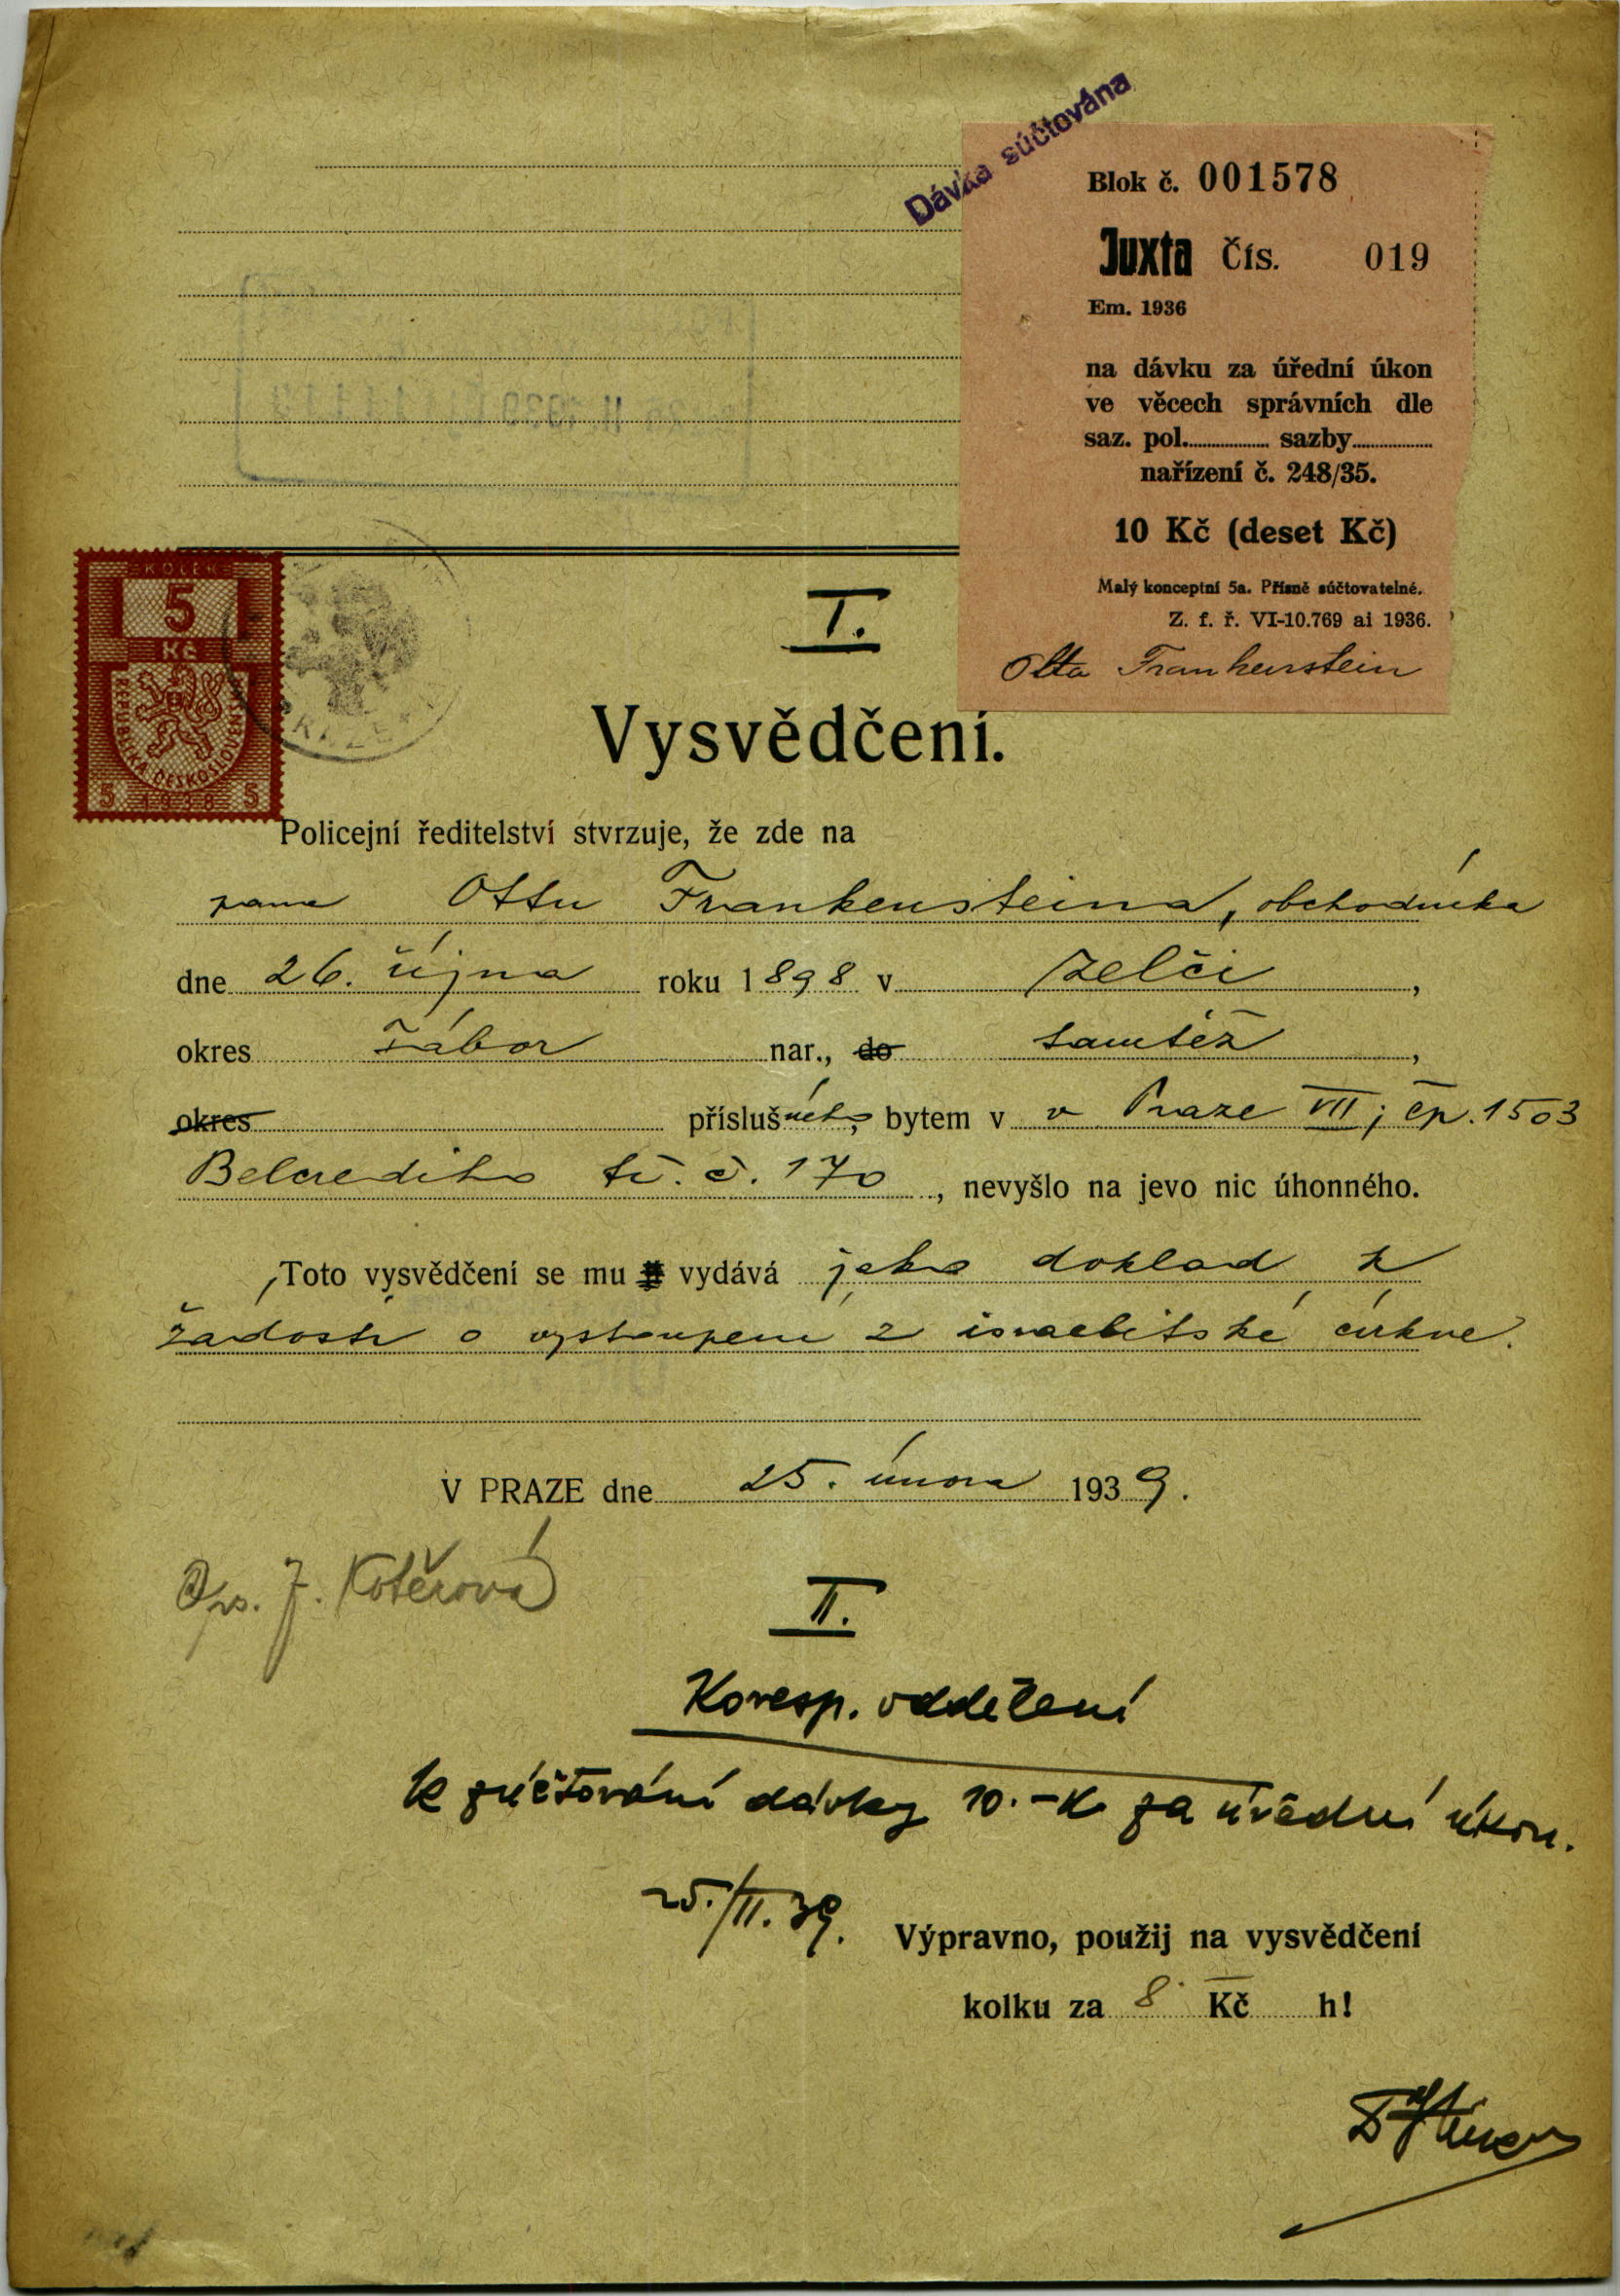 Dávka súčtována
Blok č. 001578
Juxta Čís. 019
Em. 1936
na dávku za úřední úkon
ve věcech správních dle
saz. pol. sazby
nařízení č. 248/35.
10 Kč (deset Kč)
Malý konceptní 5a. Přísně súčtovatelné.
Z. f. ř. VI-10.769 ai 1936.
Otto Frankenstein
KOLEK
5
Kč
REPUBLIKA ČESKOSLOVENSKÁ
5 1938 5
I.
Vysvědčení.
Policejní ředitelství stvrzuje, že zde na
pana Ottu Frankensteina, obchodníka
dne 26. října roku 1898 v Želči,
okres Tábor nar., do tamtéž,
okres příslušného, bytem v v Praze VII, čp. 1503
Belcrediho tř. č. 170, nevyšlo na jevo nic úhonného.
Toto vysvědčení se mu vydává jako doklad k
žádosti o vystoupení z israelitské církve.
V PRAZE dne 25. února 1939.
Ops. J. Kotěrová
II.
Koresp. oddělení
k zúčtování dávky 10.-K za úřední úkon.
25./II. 39.
Výpravno, použij na vysvědčení
kolku za 8 Kč h!